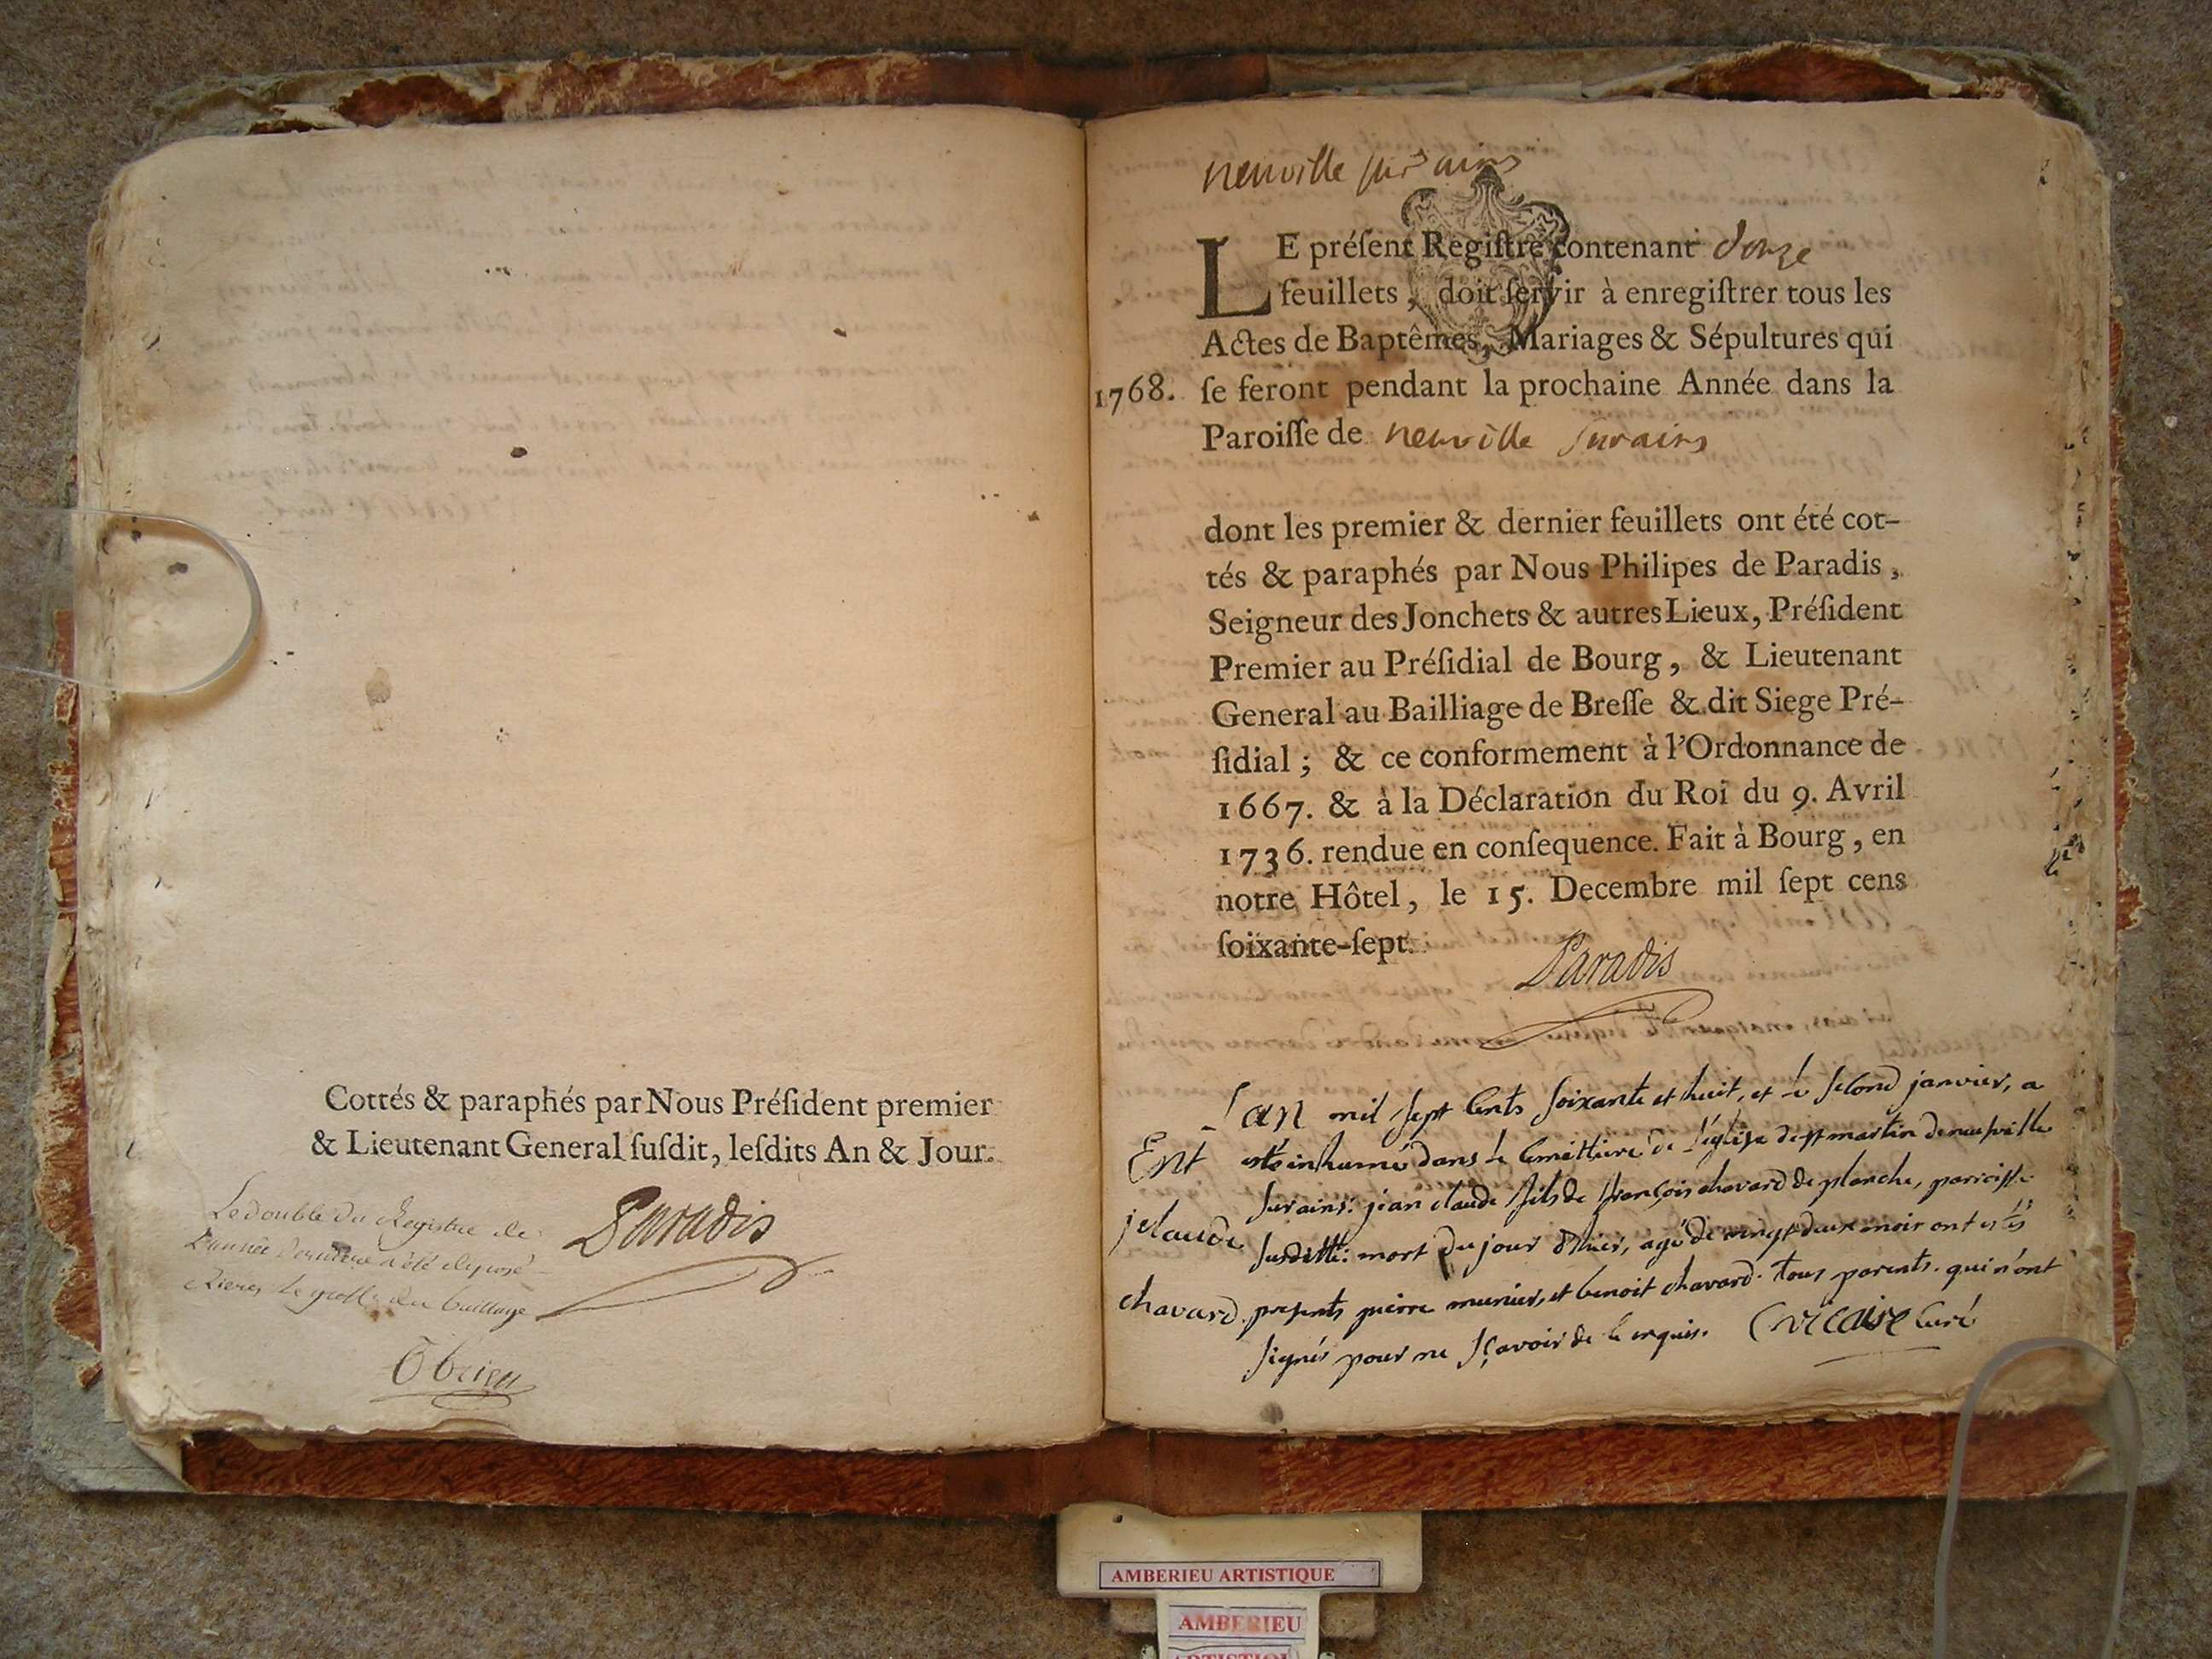 Cottés & paraphés par Nous Préſident premier
& Lieutenant General ſuſdit, leſdits An & Jour.
Le double du Registre de
L'année derniere a été deposé
Rieres le greffe du bailliage
Paradis
Obrien
neuville sur ains
LE préſent Regiſtre contenant douze
feuillets, doit ſervir à enregiſtrer tous les
Actes de Baptêmes, Mariages & Sépultures qui
1768. ſe feront pendant la prochaine Année dans la
Paroiſſe de neuville surains
dont les premier & dernier feuillets ont été cot-
tés & paraphés par Nous Philipes de Paradis,
Seigneur des Jonchets & autres Lieux, Préſident
Premier au Préſidial de Bourg, & Lieutenant
General au Bailliage de Breſſe & dit Siege Pré-
ſidial ; & ce conformement à l'Ordonnance de
1667. & à la Déclaration du Roi du 9. Avril
1736. rendue en conſequence. Fait à Bourg, en
notre Hôtel, le 15. Decembre mil ſept cens
ſoixante-ſept.
Paradis
L'an mil sept cents soixante et huit, et le second janvier, a
Ent esté inhumé dans le cemettiere de l'église de st martin de neufville
surains: jean claude fils de françois chavard de planche, parroisse
jclaude susditte: mort du jour d'hier, agé de vingt deux mois ont estés
chavard. presents pierre munier, et benoit chavard. tous parents. qui n'ont
signés pour ne sçavoir de ce enquis. curé
AMBERIEU ARTISTIQUE
AMBERIEU